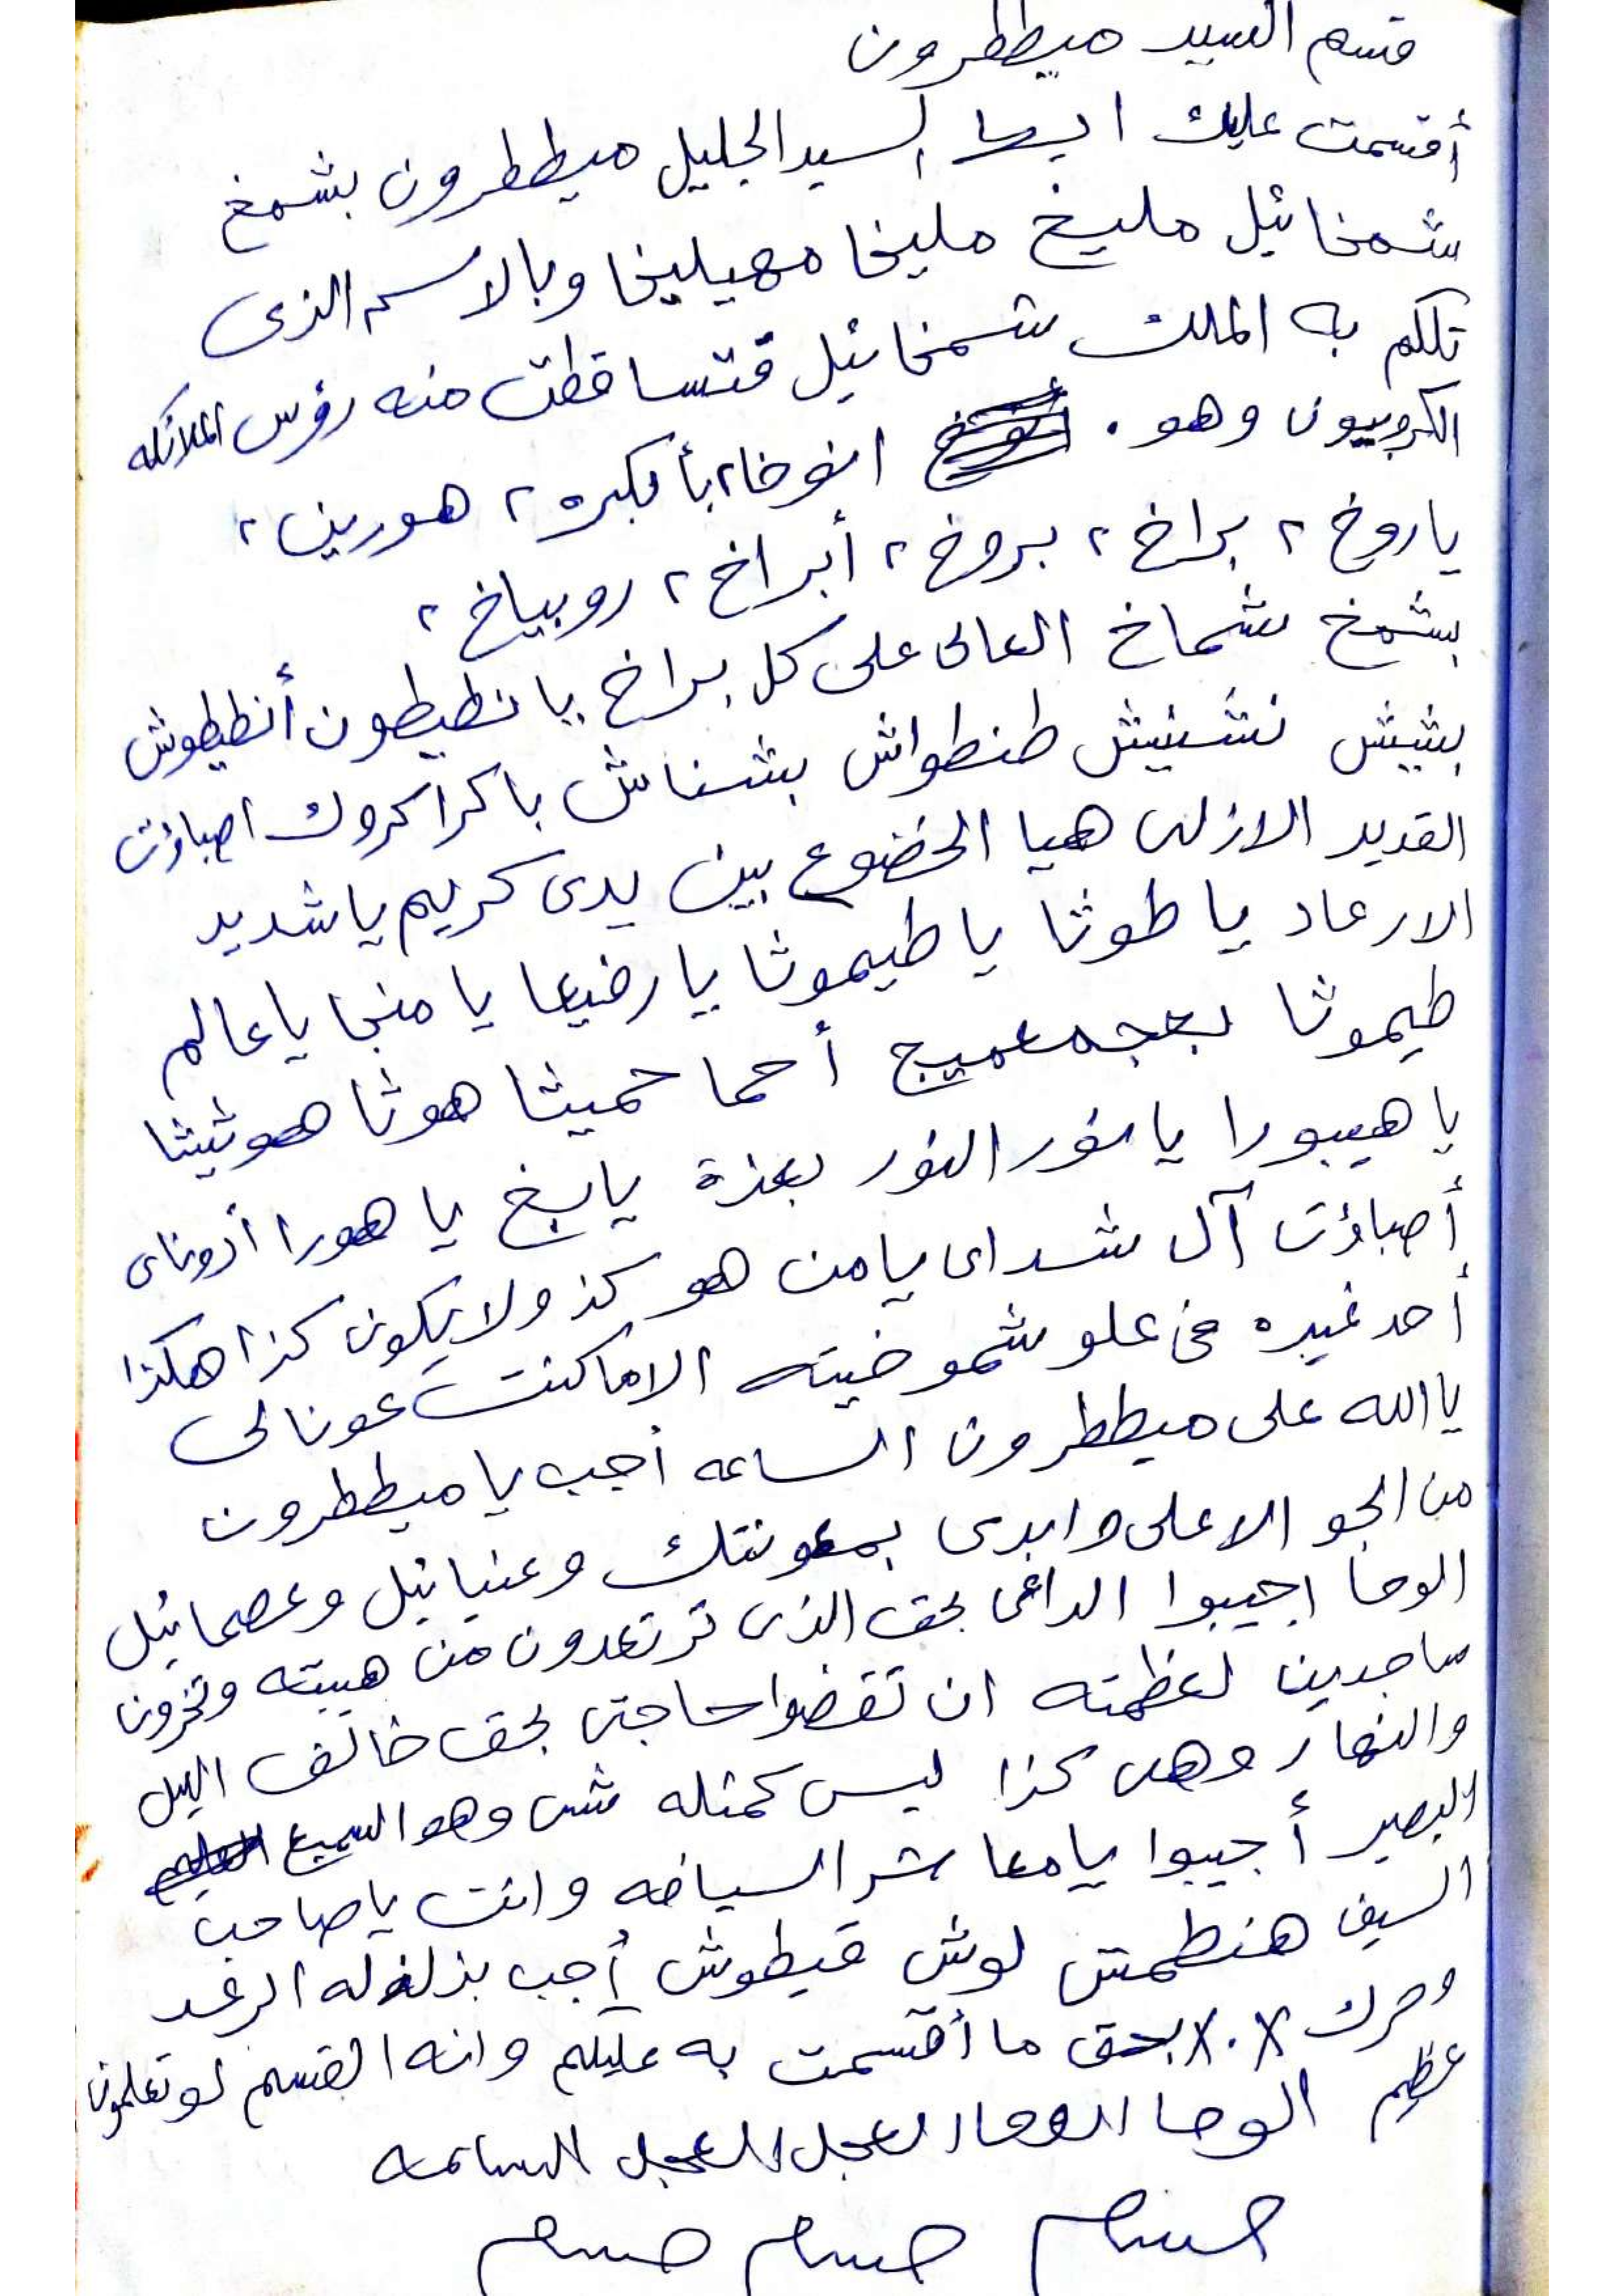 قسم السيد ميططرون
أقسمت عليك ايها السيد الجليل ميططرون بشمخ
شمخائيل مليخ مليخا مهيليخا وبالاسم الذى
تكلم به الملك شمخائيل فتساقطت منه رؤس الملائكه
الكروبيون وهو . انوخا، بأبكره، هورين،
ياروخ، براخ، بروخ، أبراخ، روبياخ،
بشمخ شماخ العالى على كل براخ يانطيطون أنطيطوش
بشيش نشنيش طنطواش بشناش باكراكروك اصباؤت
القديد الازلى هيا الخضوع بين يدى كريم ياشديد
الارعاد ياطوثا ياطيموثا يارضيعا يامنجا ياعالم
طيموثا أحما حميثا هوثا هوثيثا
ياهيبورا يانور النور بعزة يابخ ياهورا أدوناى
أصباؤت آل شداى يامن هو كذ ولايكون كذا هكذا
أحد غيره فى علو شموخيته الاماكنت عونالى
ياالله على ميططرون الساعه أجب ياميططرون
من الجو الاعلى وابدى بمعونتك وعنيائيل وعصمائيل
الوحا اجيبوا الداعى بحق الذى ترتعدون من هيبته وتخرون
ساجدين لعظمته ان تقضوا حاجتى بحق خالق اليل
والنهار وهى كذا ليس كمثله شى وهو السميع
البصير أجيبوا يامعاشر السيافه وانت ياصاحب
السيف هنطمش لوش قيطوش أجب بزلزله الرعد
وحرك ٨٠٨ بحق ما أقسمت به عليكم وانه القسم لو تعلمون
عظيم الوحا الوحا العجل العجل الساعه